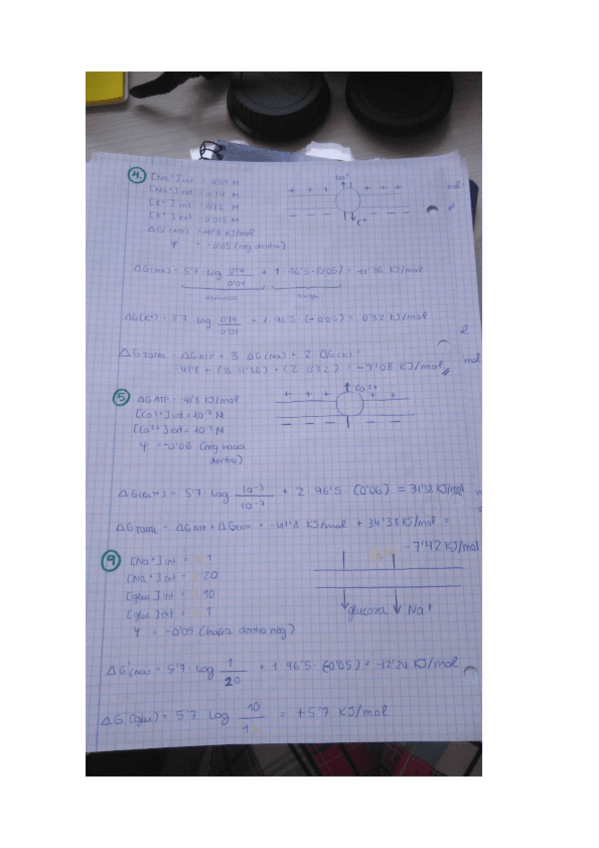 4. [Na⁺] int = 0'01 M
[Na⁺] ext = 0'14 M
[K⁺] int = 0'12 M
[K⁺] ext = 0'015 M
ΔG(ATP) = -41'8 KJ/mol
Ψ = -0'05 (neg dentro)
Na⁺
+ + + + + + +
K⁺
ΔG(Na) = 5'7 · log 0'14/0'01 + 1 · 96'5 · (0'05) = 11'36 KJ/mol
ΔG(K⁺) = 5'7 · log + 1 · 96'5 (-0'05) = 0'32 KJ/mol
ΔG TOTAL = ΔG ATP + 3 ΔG(Na) + 2 ΔG(K) =
-41'8 + (3 · 11'36) + (2 · 0'32) = -7'08 KJ/mol
5 ΔG ATP = -41'8 KJ/mol
[Ca²⁺] int = 10⁻⁷ M
[Ca²⁺] ext = 10⁻³ M
Ψ = -0'06 (neg hacia
dentro)
Ca²⁺
+ + + + +
ΔG(Ca²⁺) = 5'7 · log 10⁻³/10⁻⁷ + 2 · 96'5 · (0'06) = 34'38 KJ/mol
ΔG TOTAL = ΔG ATP + ΔG = -41'8 KJ/mol + 34'38 KJ/mol =
-7'42 KJ/mol
9 [Na⁺] int = 1
[Na⁺] ext = 20
[gluc] int = 10
[gluc] ext = 1
Ψ = -0'05 (hacia dentro neg)
glucosa Na⁺
ΔG'(Na) = 5'7 · log 1/20 + 1 · 96'5 · (-0'05) = -12'24 KJ/mol
ΔG'(gluc) = 5'7 log 10/1 = +5'7 KJ/mol